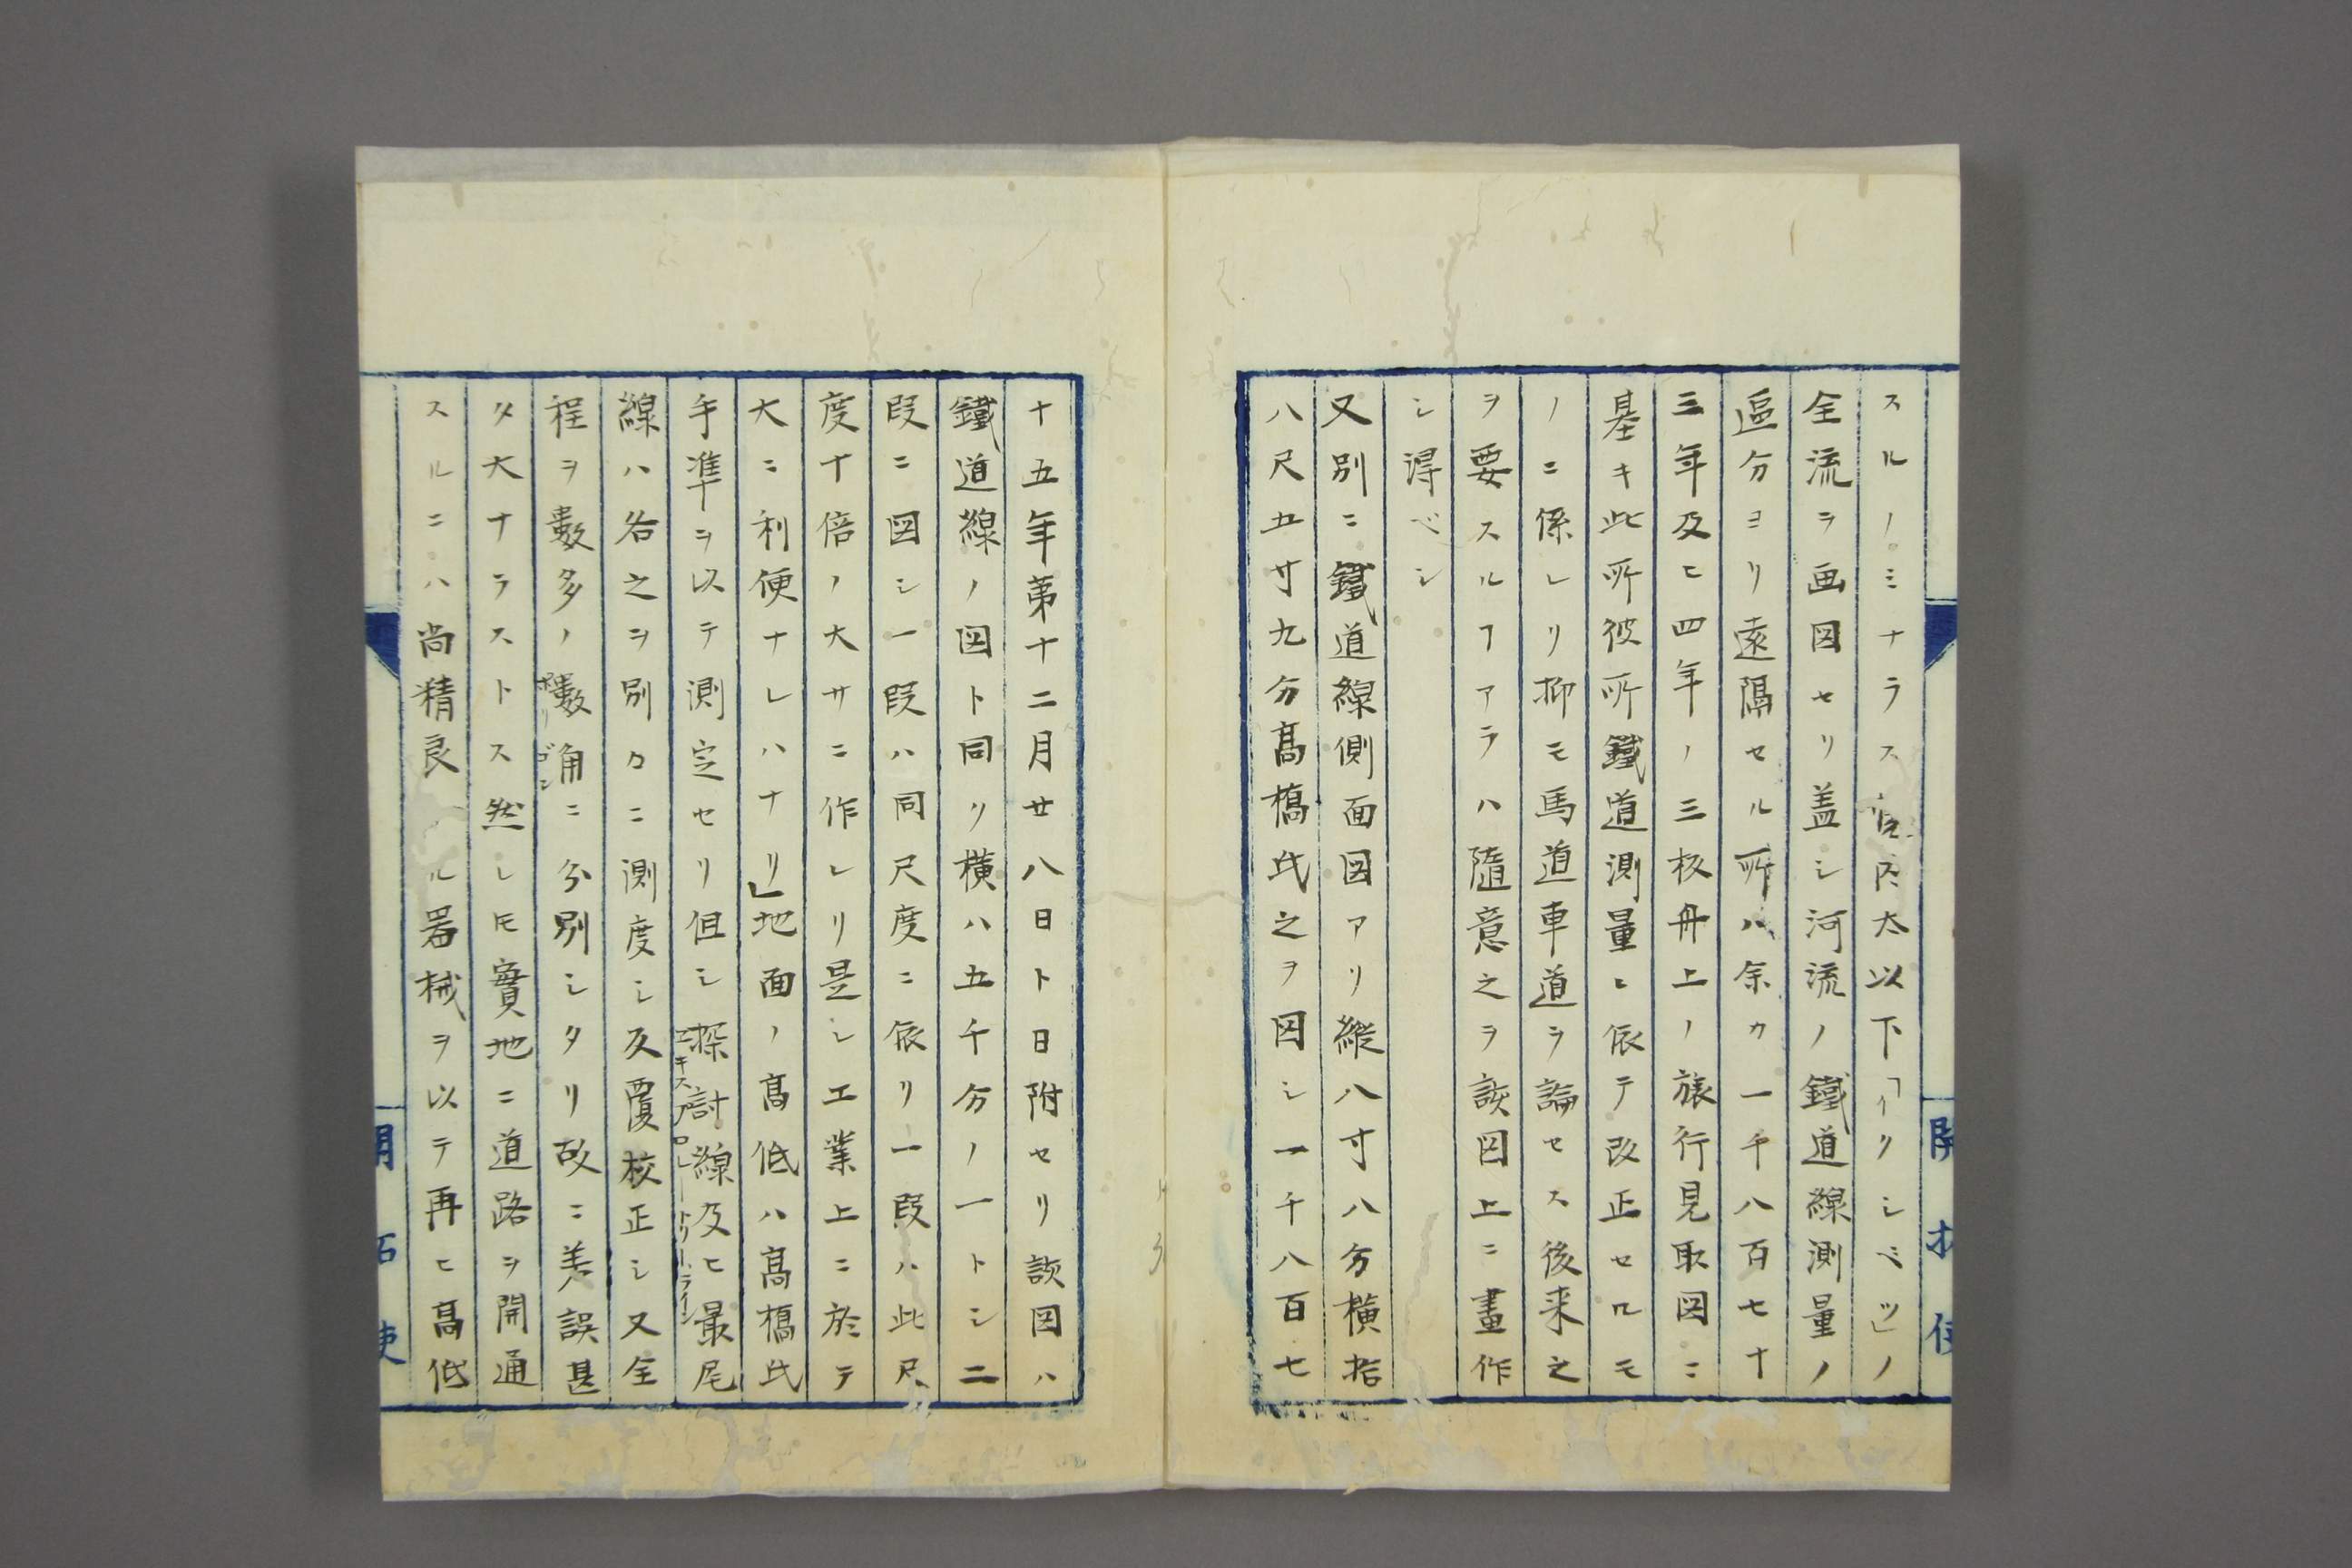 スルノミナラス 内太以下「イクシベツ」ノ
全流ヲ画図セリ盖シ河流ノ鐵道線測量ノ
區分ヨリ遠隔セル所ハ余カ一千八百七十
三年及ヒ四年ノ三板舟上ノ旅行見取図ニ
基キ此所彼所鐵道測量ニ依テ改正セルモ
ノニ係レリ抑モ馬道車道ヲ論セス後来之
ヲ要スルヿアラハ隨意之ヲ該図上ニ畫作
シ得ベシ
又別ニ鐵道線側面図アリ縱八寸八分橫拾
八尺五寸九分髙橋氏之ヲ図シ一千八百七
十五年第十二月廿八日ト日附セリ該図ハ
鐵道線ノ図ト同リ橫ハ五千分ノ一トシ二
段ニ図シ一段ハ同尺度ニ依リ一段ハ此尺
度十倍ノ大サニ作レリ是レ工業上ニ於テ
大ニ利便ナレハナリ」地面ノ髙低ハ髙橋氏
手準ヲ以テ測定セリ但シ探討線及ヒ最尾
エキスプロレートリー、ライン
線ハ各之ヲ別々ニ測度シ反覆校正シ又全
程ヲ數多ノ數角ニ分別シタリ故ニ差誤甚
ポリゴン
タ大ナラストス然レ𪜈實地ニ道路ヲ開通
スルニハ尚精良ナル器械ヲ以テ再ヒ髙低
開拓使
開拓使